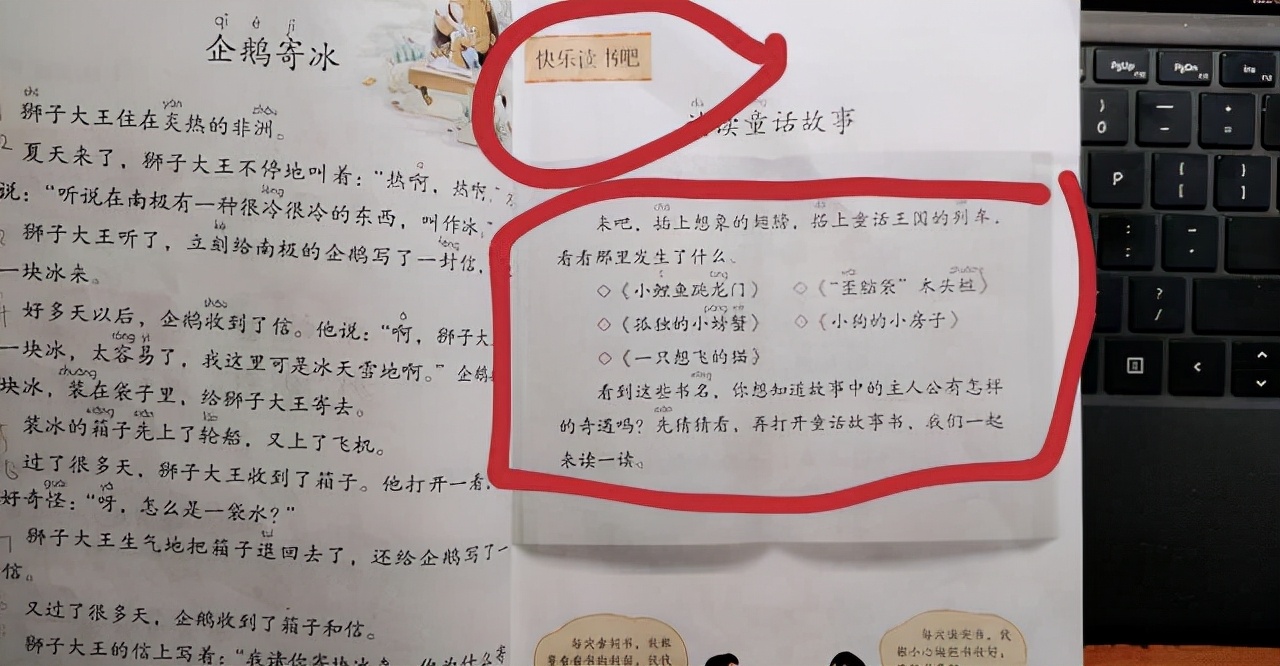 企鹅寄冰
狮子大王住在炎热的非洲。
夏天来了，狮子大王不停地叫着：“热啊，热啊。”
说：“听说在南极有一种很冷很冷的东西，叫作冰，
狮子大王听了，立刻给南极的企鹅写了一封信，
一块冰来。
好多天以后，企鹅收到了信。他说：“啊，狮子大
一块冰，太容易了，我这里可是冰天雪地啊。”企鹅
块冰，装在袋子里，给狮子大王寄去。
装冰的箱子先上了轮船，又上了飞机。
过了很多天，狮子大王收到了箱子。他打开一看，
好奇怪：“呀，怎么是一袋水？”
狮子大王生气地把箱子退回去了，还给企鹅写了一
信。
又过了很多天，企鹅收到了箱子和信。
狮子大王的信上写着：“我请你寄块冰来，你为什么寄
快乐读书吧
读童话故事
来吧，插上想象的翅膀，搭上童话王国的列车，
看看那里发生了什么。
◇《小鲤鱼跳龙门》 ◇《“歪脑袋”木头桩》
◇《孤独的小螃蟹》 ◇《小狗的小房子》
◇《一只想飞的猫》
看到这些书名，你想知道故事中的主人公有怎样
的奇遇吗？先猜猜看，再打开童话故事书，我们一起
来读一读。
PgUp
PgDn
Ins
P